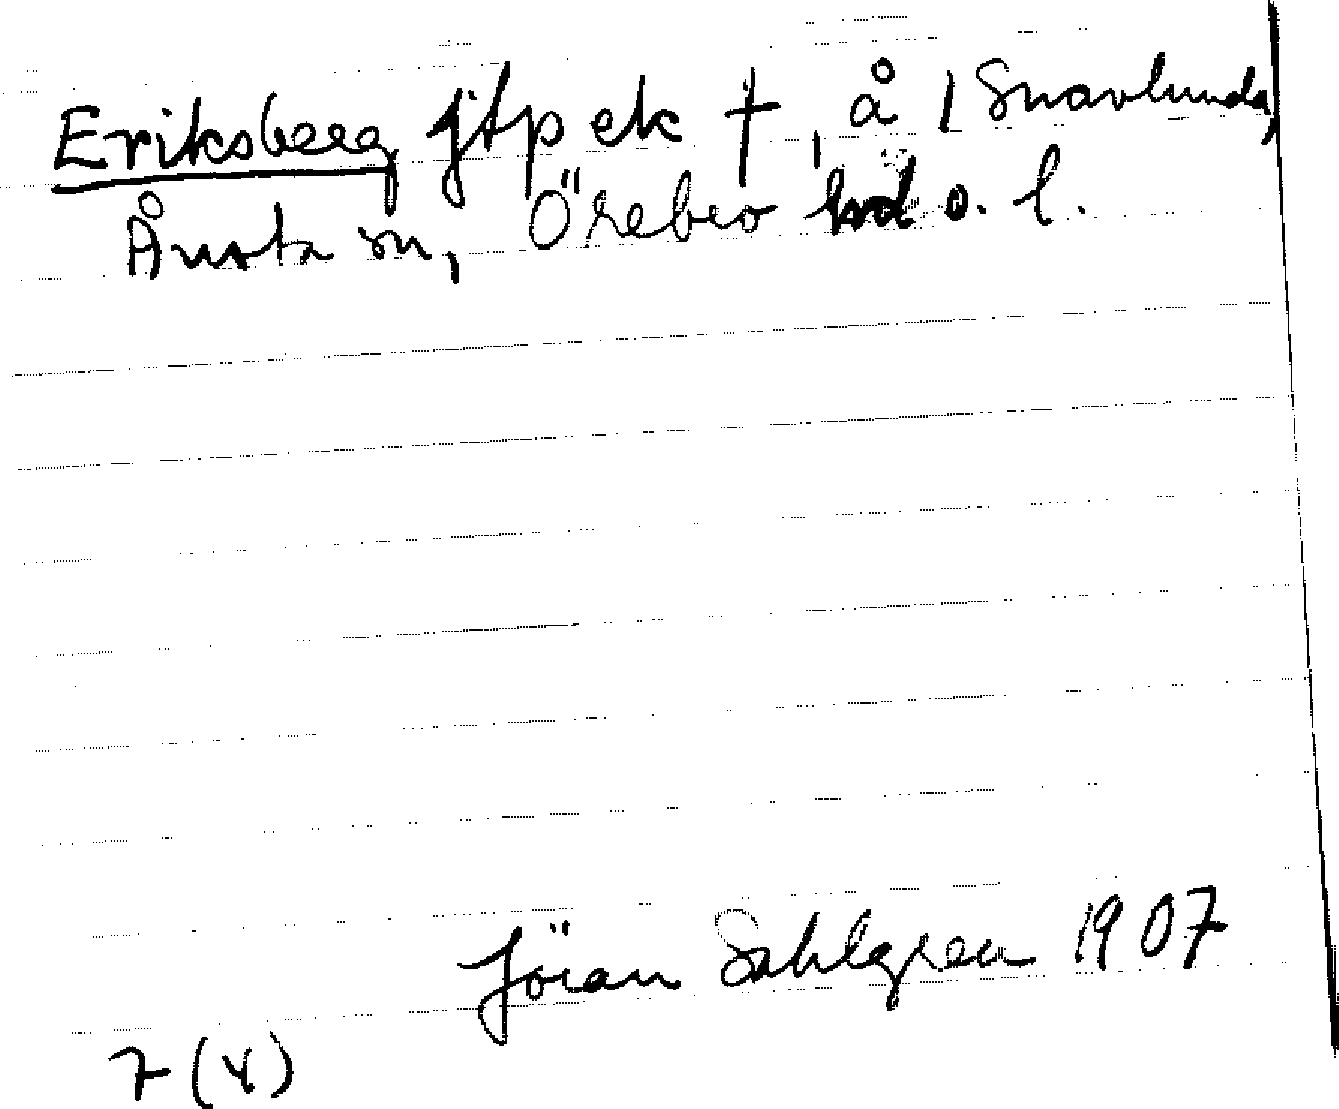 Eriksberg jtp ek †, å 1 Snavlunda,
Ånsta sn, Örebro hd o. l.
Jöran Sahlgren 1907
7 (4)